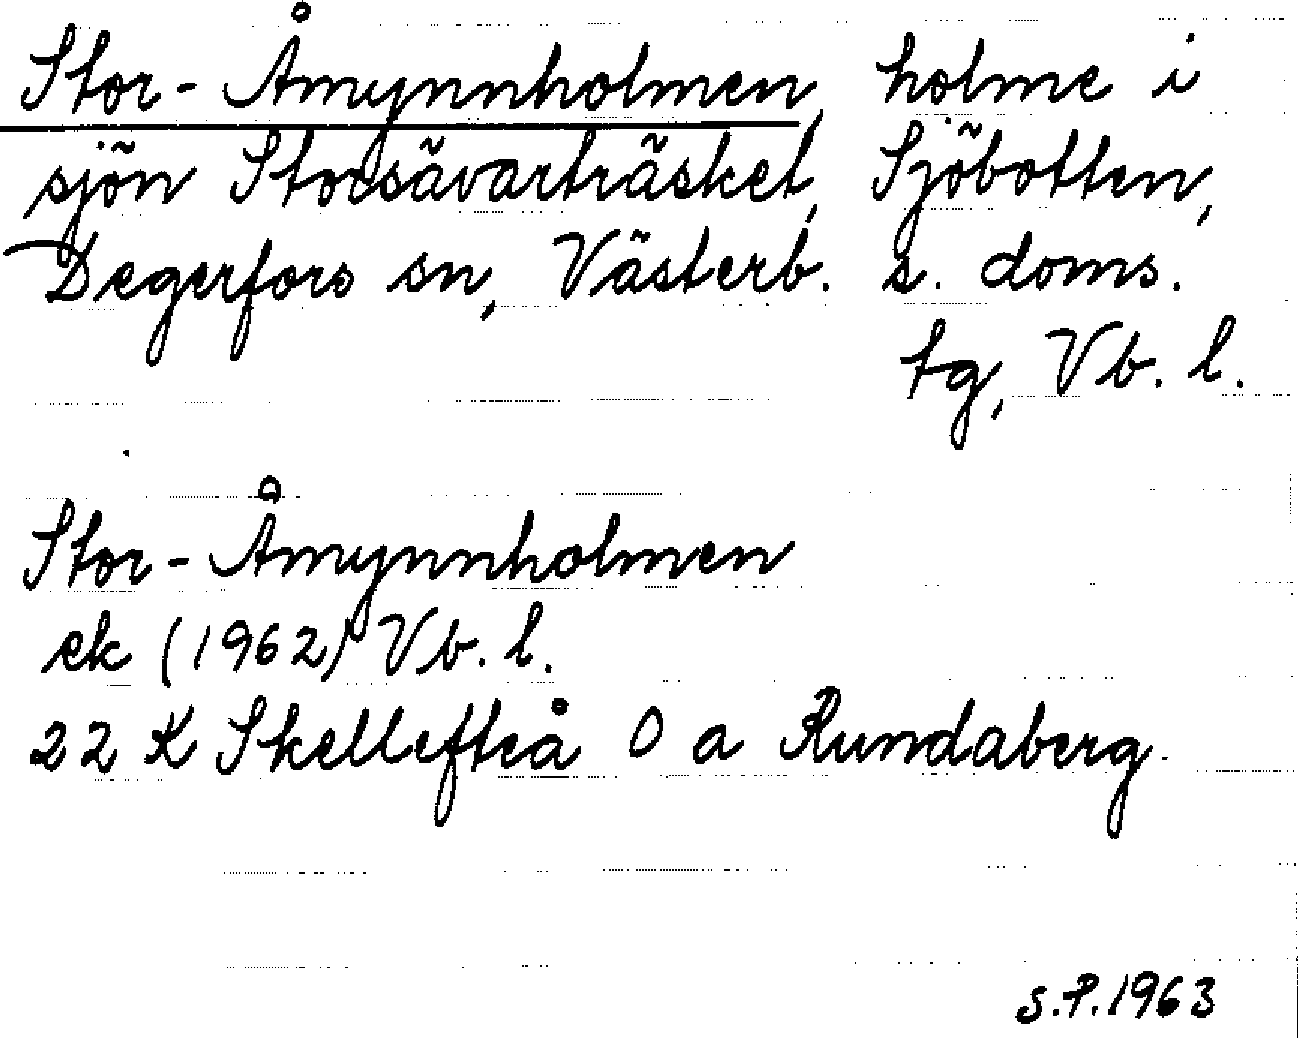 Stor-Åmynnholmen, holme i
sjön Storsävarträsket, Sjöbotten,
Degerfors sn, Västerb. s. doms.
tg, Vb. l.
Stor-Åmynnholmen
ek (1962) Vb. l.
22 K Skellefteå 0 a Rundaberg.
S.P. 1963